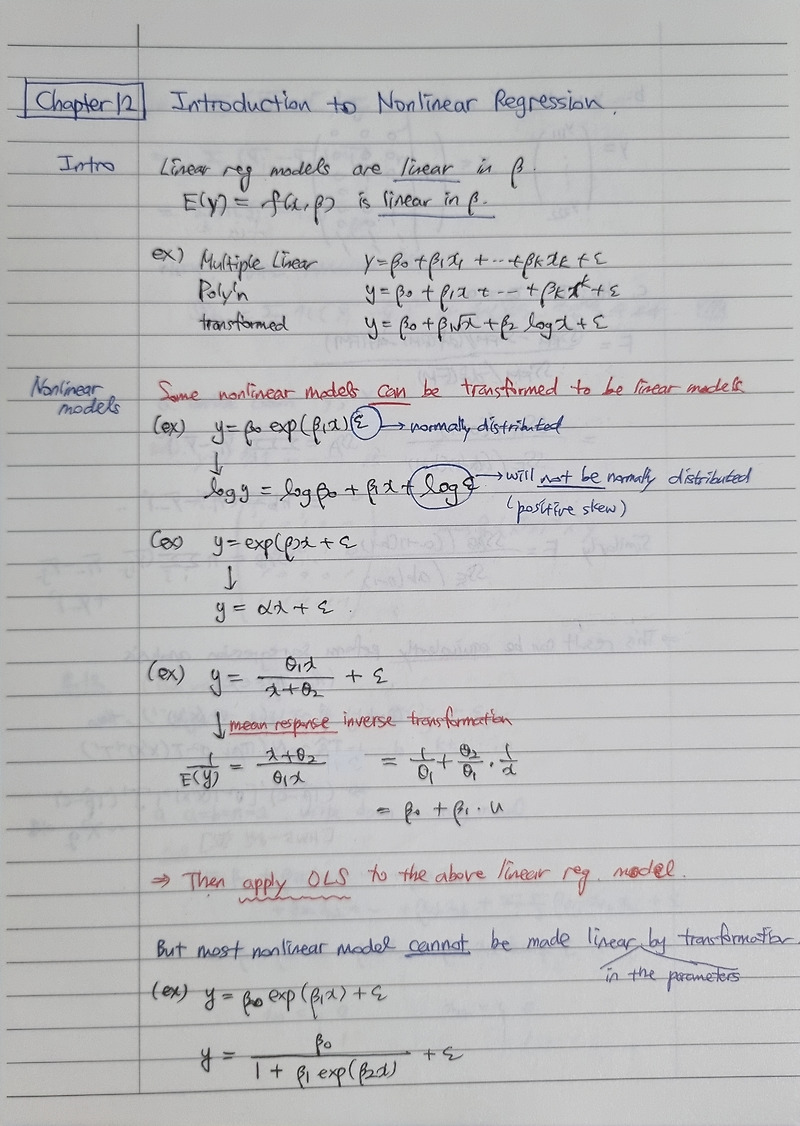 Chapter 12 Introduction to Nonlinear Regression.
Intro Linear reg models are linear in β.
E(y) = f(x, β) is linear in β.
ex) Multiple Linear y = β0 + β1x1 + ... + βkxk + ε
Poly'n y = β0 + β1x + ... + βkx^k + ε
transformed y = β0 + β1√x + β2 log x + ε
Nonlinear models Some nonlinear models can be transformed to be linear models
(ex) y = β0 exp(β1x) ε → normally distributed
↓
log y = log β0 + β1x + log ε → will not be normally distributed
(positive skew)
(ex) y = exp(β)x + ε
↓
y = αx + ε.
(ex) y = θ1x / (x + θ2) + ε
↓ mean response inverse transformation
1/E(y) = (x + θ2)/(θ1x) = 1/θ1 + θ2/θ1 · 1/x
= β0 + β1 · u
⇒ Then apply OLS to the above linear reg. model.
But most nonlinear model cannot be made linear by transformation
in the parameters
(ex) y = β0 exp(β1x) + ε
y = β0 / (1 + β1 exp(β2x)) + ε